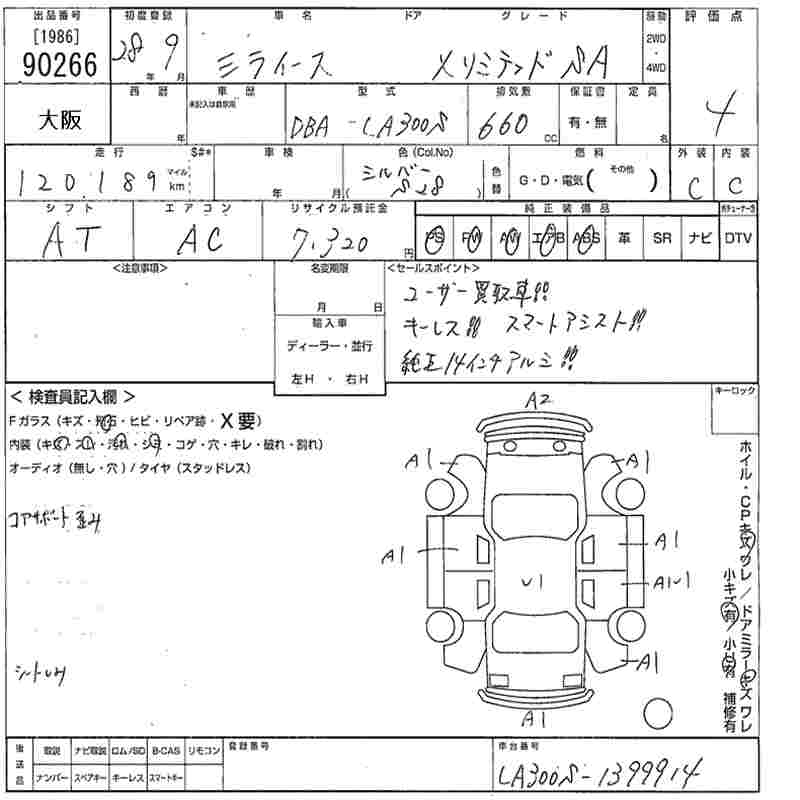 出品番号 初度登録 車名 ドア グレード 駆動 評価点
[1986]
90266
28年 9月 ミライース Xリミテッド SA 2WD・4WD 4
大阪
西暦 年 車歴 未記入は自家用 型式 排気数 保証書 定員
DBA-LA300S 660 CC 有・無 名
走行 $#* 車検 色(Col.No) 色替 燃料 外装 内装
120,189 マイル km 年 月 シルバー (S28) G・D・電気( その他 ) C C
シフト エアコン リサイクル預託金 純正装備品 地デジチューナー含
AT AC 7,320 円 PS PW AW エアB ABS 革 SR ナビ DTV
<注意事項> 名変期限 <セールスポイント>
月 日
ユーザー買取車!!
輸入車
キーレス!! スマートアシスト!!
ディーラー・並行
純正14インチアルミ!!
左H・右H
< 検査員記入欄 > キーロック
Fガラス(キズ・飛石・ヒビ・リペア跡・X要)
内装(キズ・スレ・汚れ・シミ・コゲ・穴・キレ・破れ・割れ)
オーディオ(無し・穴)/タイヤ(スタッドレス)
コアサポート歪み
シートしみ
A2
A1 A1
A1 A1
U1 A1U1
A1
A1
ホイル・CPキズワレ/ドアミラーキズワレ
小キズ有/小凹有 補修有
後送品 取説 ナビ取説 ロム/SD B-CAS リモコン 登録番号 車台番号
ナンバー スペアキー キーレス スマートキー LA300S-1399914